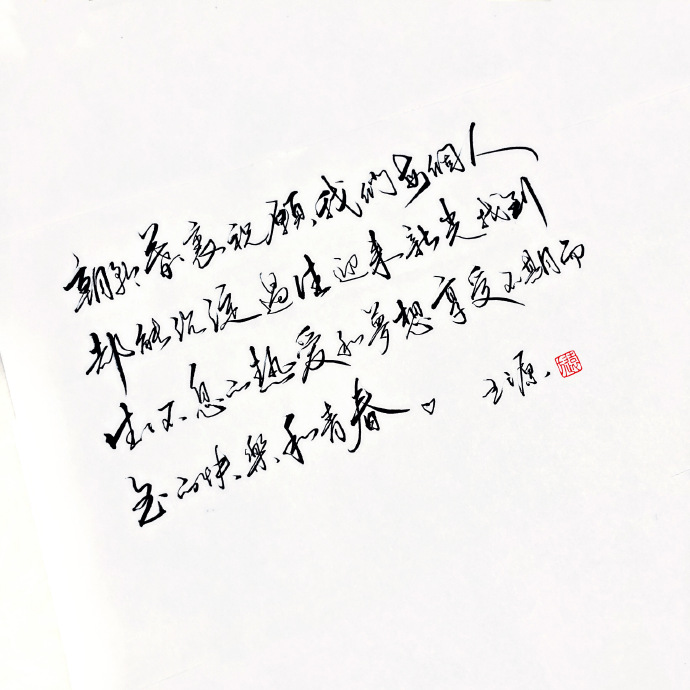 朝朝暮暮祝願我們每個人
都能沉淀過往迎来新光找到
生生不息的热爱和夢想享受不期而
至的快樂和青春♡ 王源